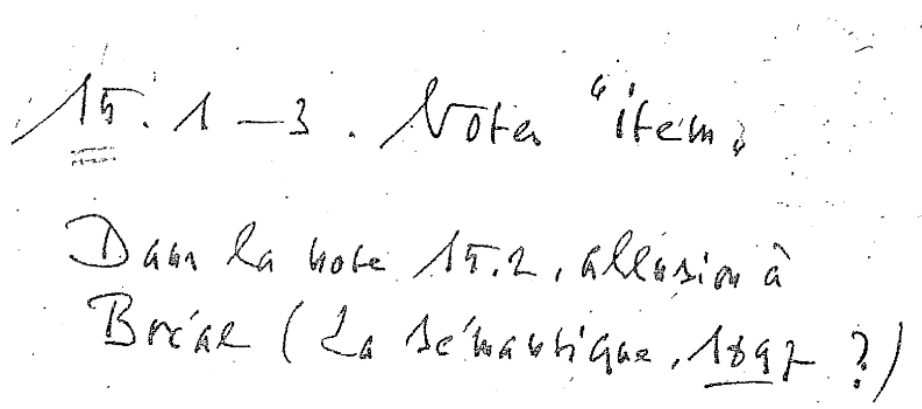 15. 1 – 3. Notes "item„
Dans la note 15.2, allusion à
Bréal (La sémantique, 1897 ?)